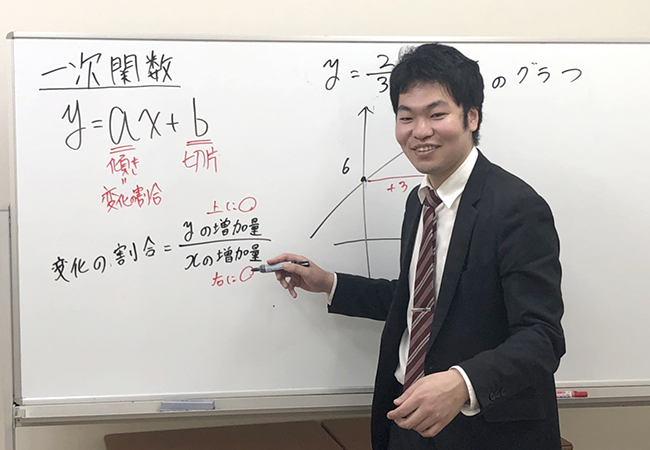 一次関数
y=ax+b
傾き
=
変化の割合
切片
変化の割合=
上に○
yの増加量
xの増加量
右に○
y=2/3
のグラフ
6
+3